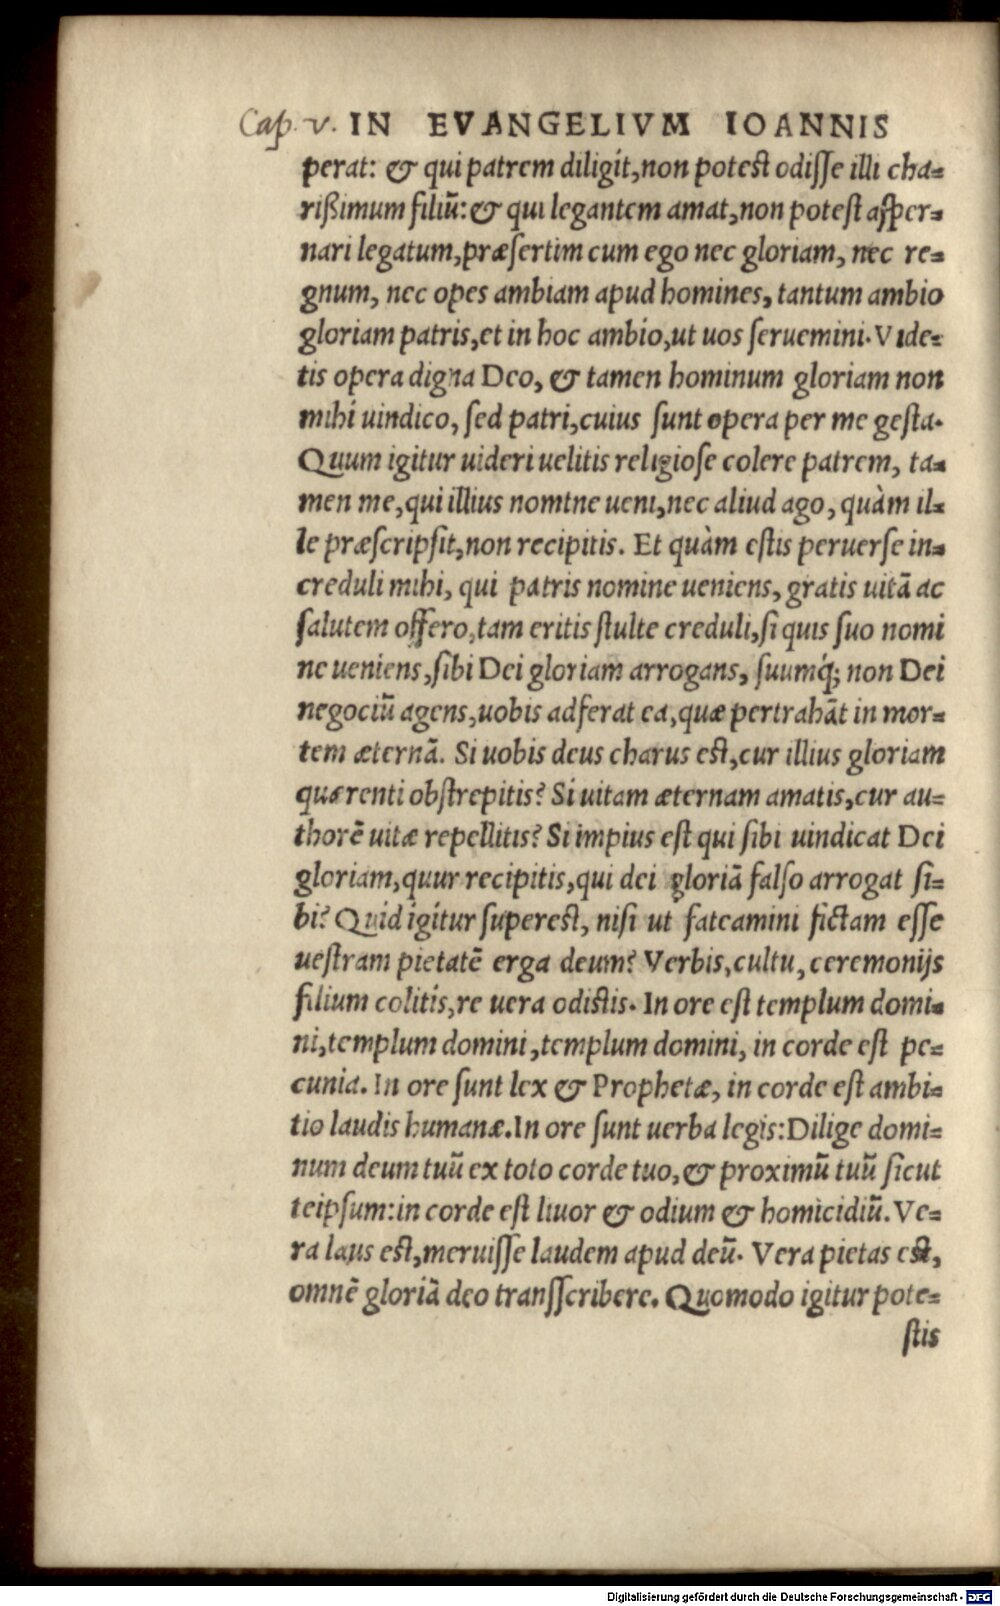 Cap. v. IN EVANGELIVM IOANNIS
perat: & qui patrem diligit, non potest odisse illi cha=
rißimum filiũ: & qui legantem amat, non potest asper=
nari legatum, præsertim cum ego nec gloriam, nec re=
gnum, nec opes ambiam apud homines, tantum ambio
gloriam patris, et in hoc ambio, ut uos seruemini. Vide=
tis opera digna Deo, & tamen hominum gloriam non
mihi uindico, sed patri, cuius sunt opera per me gesta.
Quum igitur uideri uelitis religiose colere patrem, ta=
men me, qui illius nomtne ueni, nec aliud ago, quàm il=
le præscripsit, non recipitis. Et quàm estis peruerse in=
creduli mihi, qui patris nomine ueniens, gratis uitã ac
salutem offero, tam eritis stulte creduli, si quis suo nomi
ne ueniens, sibi Dei gloriam arrogans, suumq́; non Dei
negociũ agens, uobis adferat ea, quæ pertrahãt in mor=
tem æternã. Si uobis deus charus est, cur illius gloriam
quærenti obstrepitis? Si uitam æternam amatis, cur au=
thorẽ uitæ repellitis? Si impius est qui sibi uindicat Dei
gloriam, quur recipitis, qui dei gloriã falso arrogat si=
bi? Quid igitur superest, nisi ut fateamini fictam esse
uestram pietatẽ erga deum? Verbis, cultu, ceremonijs
filium colitis, re uera odistis. In ore est templum domi=
ni, templum domini, templum domini, in corde est pe=
cunia. In ore sunt lex & Prophetæ, in corde est ambi=
tio laudis humanæ. In ore sunt uerba legis: Dilige domi=
num deum tuũ ex toto corde tuo, & proximũ tuũ sicut
teipsum: in corde est liuor & odium & homicidiũ. Ve=
ra laus est, meruisse laudem apud deũ. Vera pietas est,
omnẽ gloriã deo transscribere. Quomodo igitur pote=
stis
Digitalisierung gefördert durch die Deutsche Forschungsgemeinschaft - DFG